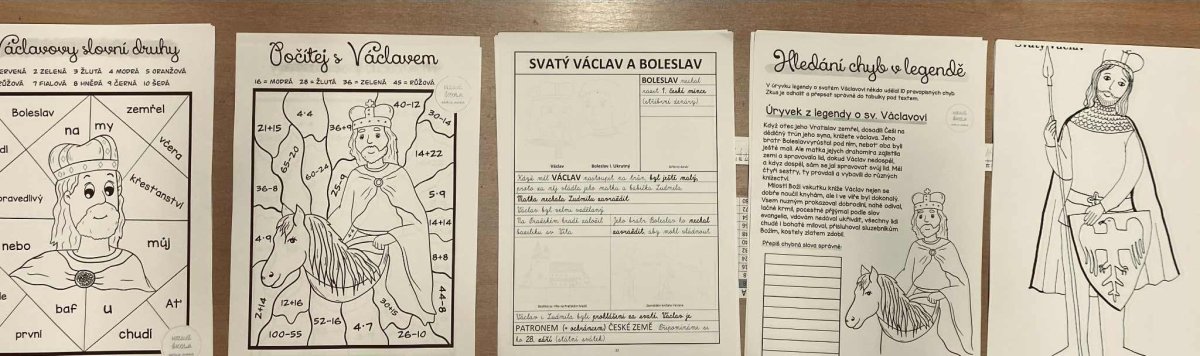 Václavovy slovní druhy
ČERVENÁ 2 ZELENÁ 3 ŽLUTÁ 4 MODRÁ 5 ORANŽOVÁ
RŮŽOVÁ 7 FIALOVÁ 8 HNĚDÁ 9 ČERNÁ 10 ŠEDÁ
Boleslav
na
my
zemřel
včera
křesťanství
můj
Ať
chudí
u
baf
první
nebo
Počítej s Václavem
16 = MODRÁ 28 = ŽLUTÁ 36 = ZELENÁ 45 = RŮŽOVÁ
4·4
40-12
30-14
21+15
36+9
14+22
65-20
60-24
25-9
36-8
5·9
14+14
4·9
8+8
2+14
12+16
44-8
30+15
100-55
52-16
4·7
26-10
SVATÝ VÁCLAV A BOLESLAV
BOLESLAV nechal
razit 1. české mince
(stříbrné denáry)
Václav
Boleslav I. Ukrutný
Když měl VÁCLAV nastoupit na trůn, byl ještě malý,
proto za něj vládla jeho matka a babička Ludmila.
Matka nechala Ludmilu zavraždit.
Václav byl velmi vzdělaný.
Na Pražském hradě založil
baziliku sv. Víta.
Jeho bratr Boleslav ho nechal
zavraždit, aby mohl vládnout.
Václav i Ludmila byli prohlášeni za svaté. Václav je
PATRONEM (= ochráncem) ČESKÉ ZEMĚ. Připomínáme si
ho 28. září (státní svátek).
Hledání chyb v legendě
V úryvku legendy o svatém Václavovi někdo udělal 10 pravopisných chyb.
Zkus je odhalit a přepsat správně do tabulky pod textem.
Úryvek z legendy o sv. Václavovi
Když otec jeho Vratislav zemřel, dosadili Češi na
dědičný trůn jeho syna, knížete václava. Jeho
bratr Boleslavvyrůstal pod ním, neboť oba byli
ještě malí. Ale matka jejych drahomíra zajistila
zemi a spravovala lid, dokud Václav nedospěl,
a když dospěl, sám se jal spravovat svůj lid. Měl
čtyři sestry, ty provdali a vybavili do různých
knížectví.
Milostí Boží vskutku kníže Václav nejen se
dobře naučil knyhám, ale i ve víře byl dokonalý.
Všem nuzným prokazoval dobrodiní, nahé odíval,
lačné krmil, pocestné přijýmal podle slov
evangelia, vdovám nedával ukřivdit, všechny lidi
chudé i bohaté miloval, přisluhoval služebníkům
Božím, kostely zlatem zdobil.
Přepiš chybná slova správně:
Svatý Václav